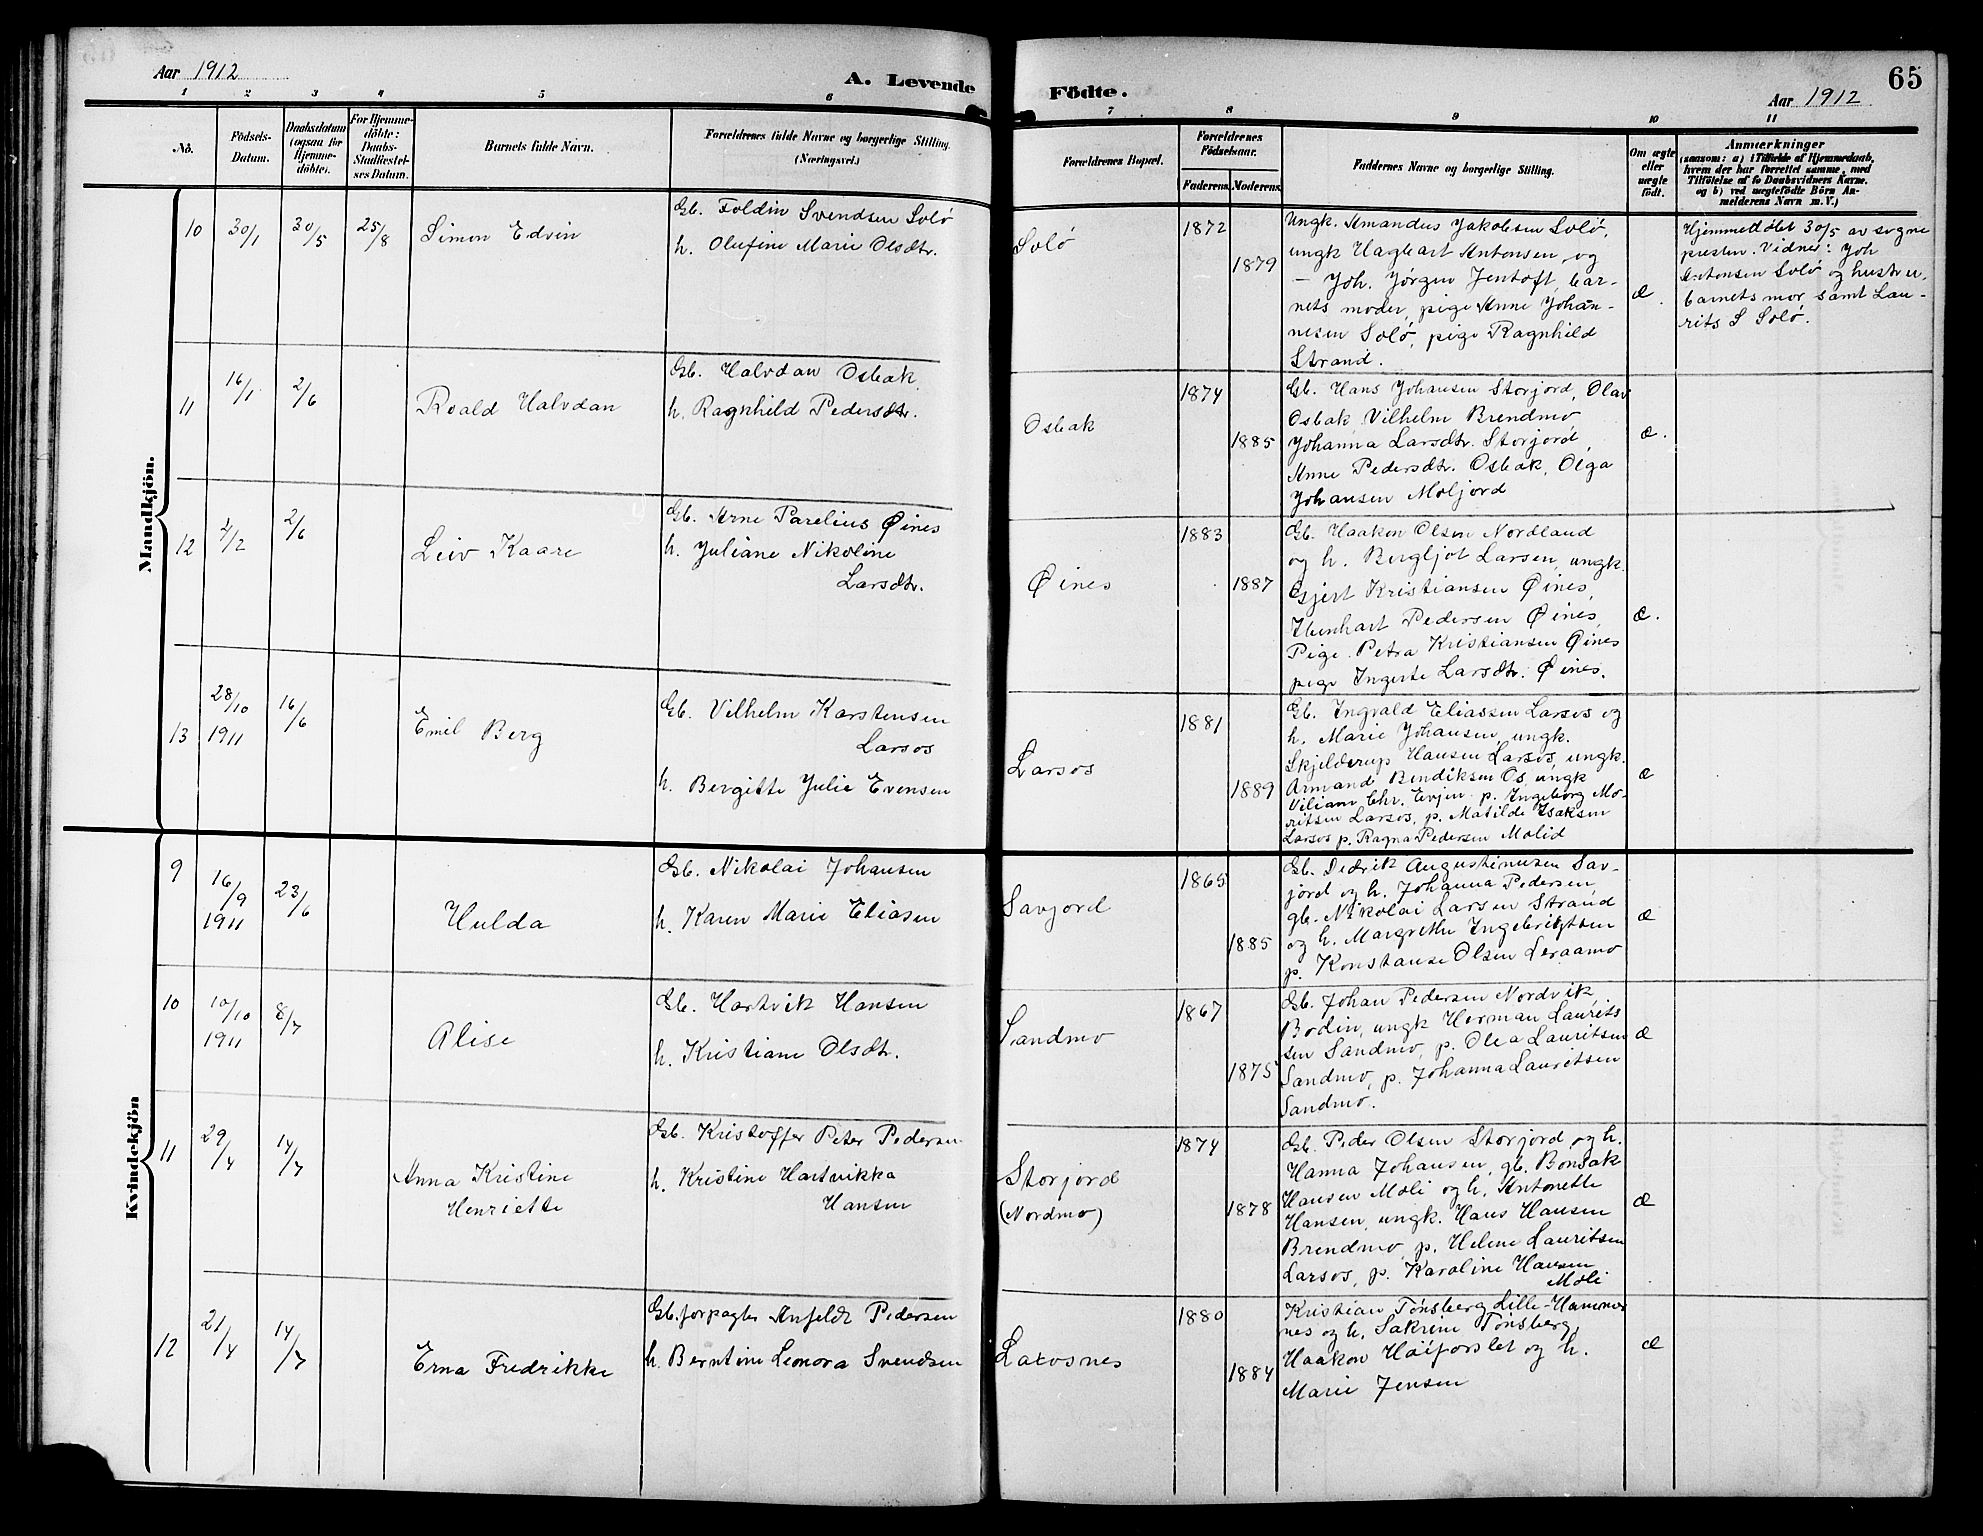 Aar 1912
A. Levende
Födte.
Aar 1912
65
1 2 3 4 5 6 7 8 9 10 11
No.
Födsels-
Datum.
Daabsdatum
(ogsaa for
Hjemme-
döbte).
For Hjemme-
döbte:
Daabs-
Stadfæstel-
ses Datum.
Barnets fulde Navn.
Forældrenes fulde Navne og borgerlige Stilling.
(Næringsvei.)
Forældrenes Bopæl.
Forældrenes
Födselsaar.
Faderens. Moderens.
Faddernes Navne og borgerlige Stilling.
Om ægte
eller
uægte
födt.
Anmærkninger
(saasom: a) i Tilfælde af Hjemmedaab,
hvem der har forrettet samme, med
Tilföielse af to Daabsvidners Navne,
og b) ved uægtefödte Börn An-
melderens Navn m. V.)
Mandkjön.
10
30/1
30/5
25/8
Simon Edvin
Gb. Foldin Svendsen Solö
h. Olufine Marie Olsdtr.
Solö
1872
1879
Ungk. Amandus Jakobsen Solö,
ungk Hagbart Antonsen, og
— Joh. Jörgen Jentoft, bar-
nets moder, pige Anne Johan-
nesen Solö, pige Ragnhild
Strand.
Æ.
Hjemmedöbt 30/5 av sogne
presten. Vidner: Joh
Antonsen Solö og hustru,
barnets mor, samt Lau-
rits S Solö.
11
16/1
2/6
Roald Halvdan
Gb. Halvdan Osbak
h. Ragnhild Pedersdtr.
Osbak
1874
1885
Gb. Hans Johansen Storjord, Olav
Osbak, Vilhelm Brendmo
Johanna Larsdtr. Storjord,
Anne Pedersdtr. Osbak, Olga
Johansen Moljord
Æ.
12
4/2
2/6
Leiv Kaare
Gb. Arne Parelius Øines
h. Juliane Nikoline
Larsdtr.
Øines
1883
1887
Gb. Haakon Olsen Nordland
og h. Bergljot Larsen, ungk.
Gjert Kristiansen Øines,
Ebenhart Pedersen Øines,
Pige Petra Kristiansen Øines
pige Ingerte Larsdtr. Øines.
Æ.
13
28/10
1911
16/6
Emil Berg
Gb. Vilhelm Karstensen
Larsos
h. Bergitte Julie Evensen
Larsos
1881
1889
Gb. Ingvald Eliassen Larsos og
h. Marie Johansen, ungk.
Skjelderup Hansen Larsos, ungk.
Armand Bendiksen Os, ungk
Viliam Chr. Evjen p. Ingeborg Mo-
ritsen Larsos, p. Matilde Isaksen
Larsos p. Ragna Pedersen Molid
Æ
Kvindekjön
9
16/9
1911
23/6
Hulda
Gb. Nikolai Johansen
h. Karen Marie Eliasen
Savjord
1865
1885
Gb. Didrik Augustinusen Sav-
jord og h. Johanna Pedersen,
gb. Nikolai Larsen Strand
og h. Margrethe Ingebrigtsen
p. Konstanse Olsen Leraamo
Æ
10
10/10
1911
8/7
Alise
Gb. Hartvik Hansen
h. Kristiane Olsdtr.
Sandmo
1867
1875
Gb. Johan Pedersen Nordvik,
Bodin, ungk Herman Laurits
sen Sandmo, p. Olea Lauritsen
Sandmo, p. Johanna Lauritsen
Sandmo.
Æ
11
29/4
14/7
Anna Kristine
Henriette
Gb. Kristoffer Peter Pedersen
h. Kristine Hartvikka
Hansen
Storjord
(Nordmo)
1874
1878
Gb. Peder Olsen Storjord og h.
Hanna Johansen, gb. Bonsak
Hansen Moli og h. Antonette
Hansen, ungk. Hans Hansen
Brendmo, p. Helene Lauritsen
Larsos, p. Karoline Hansen
Moli
Æ
12
21/4
14/7
Erna Fredrikke
Gb.forpagter Anfeldt Pedersen
h. Berntine Leonora Svendsen
Laxosnes
1880
1884
Kristian Tönsberg Lille-Hammer
nes og h. Sakrine Tönsberg,
Haakon Höiforslet og h.
Marie Jensen
Æ